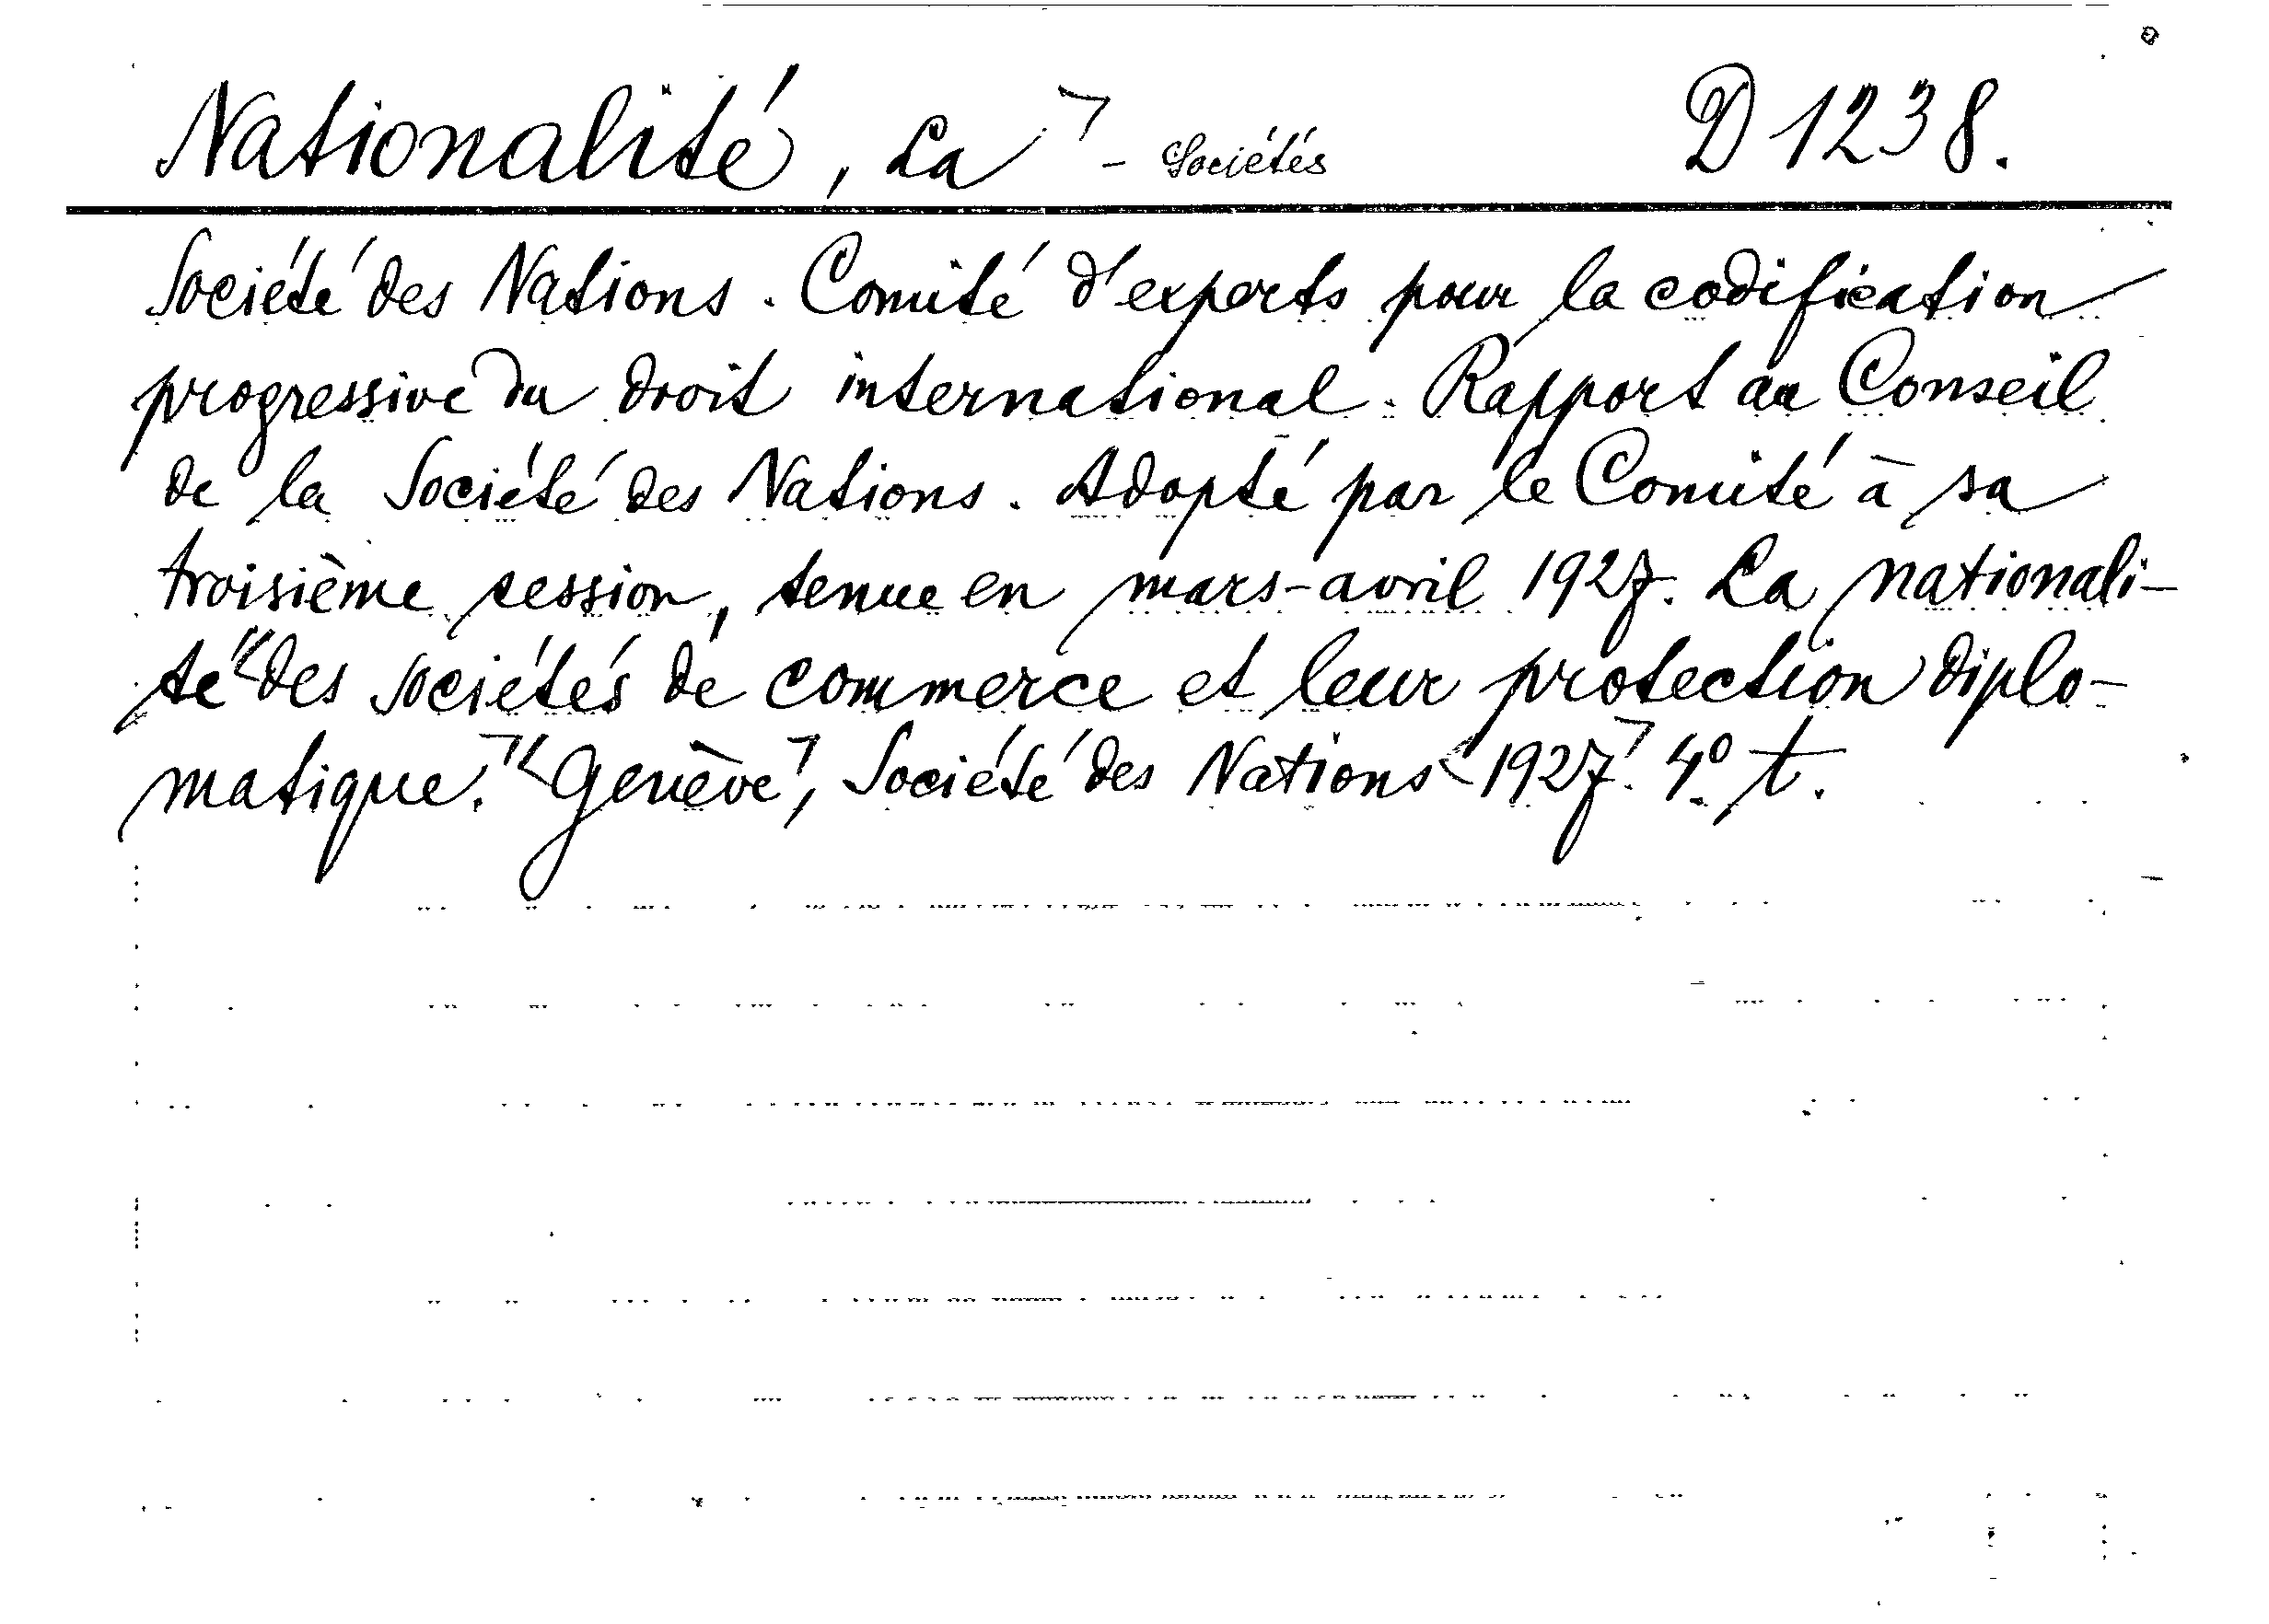 Nationalité, La⌝ - Sociétés D 1238.
Société des Nations. Comité d'experts pour la codification
progressive du droit international. Rapport au Conseil
de la Société des Nations. Adopté par le Comité à sa
troisième session, tenue en mars-avril 1927. La nationali-
té des sociétés de commerce et leur protection diplo-
matique. Genève, Société des Nations 1927. 4° t.